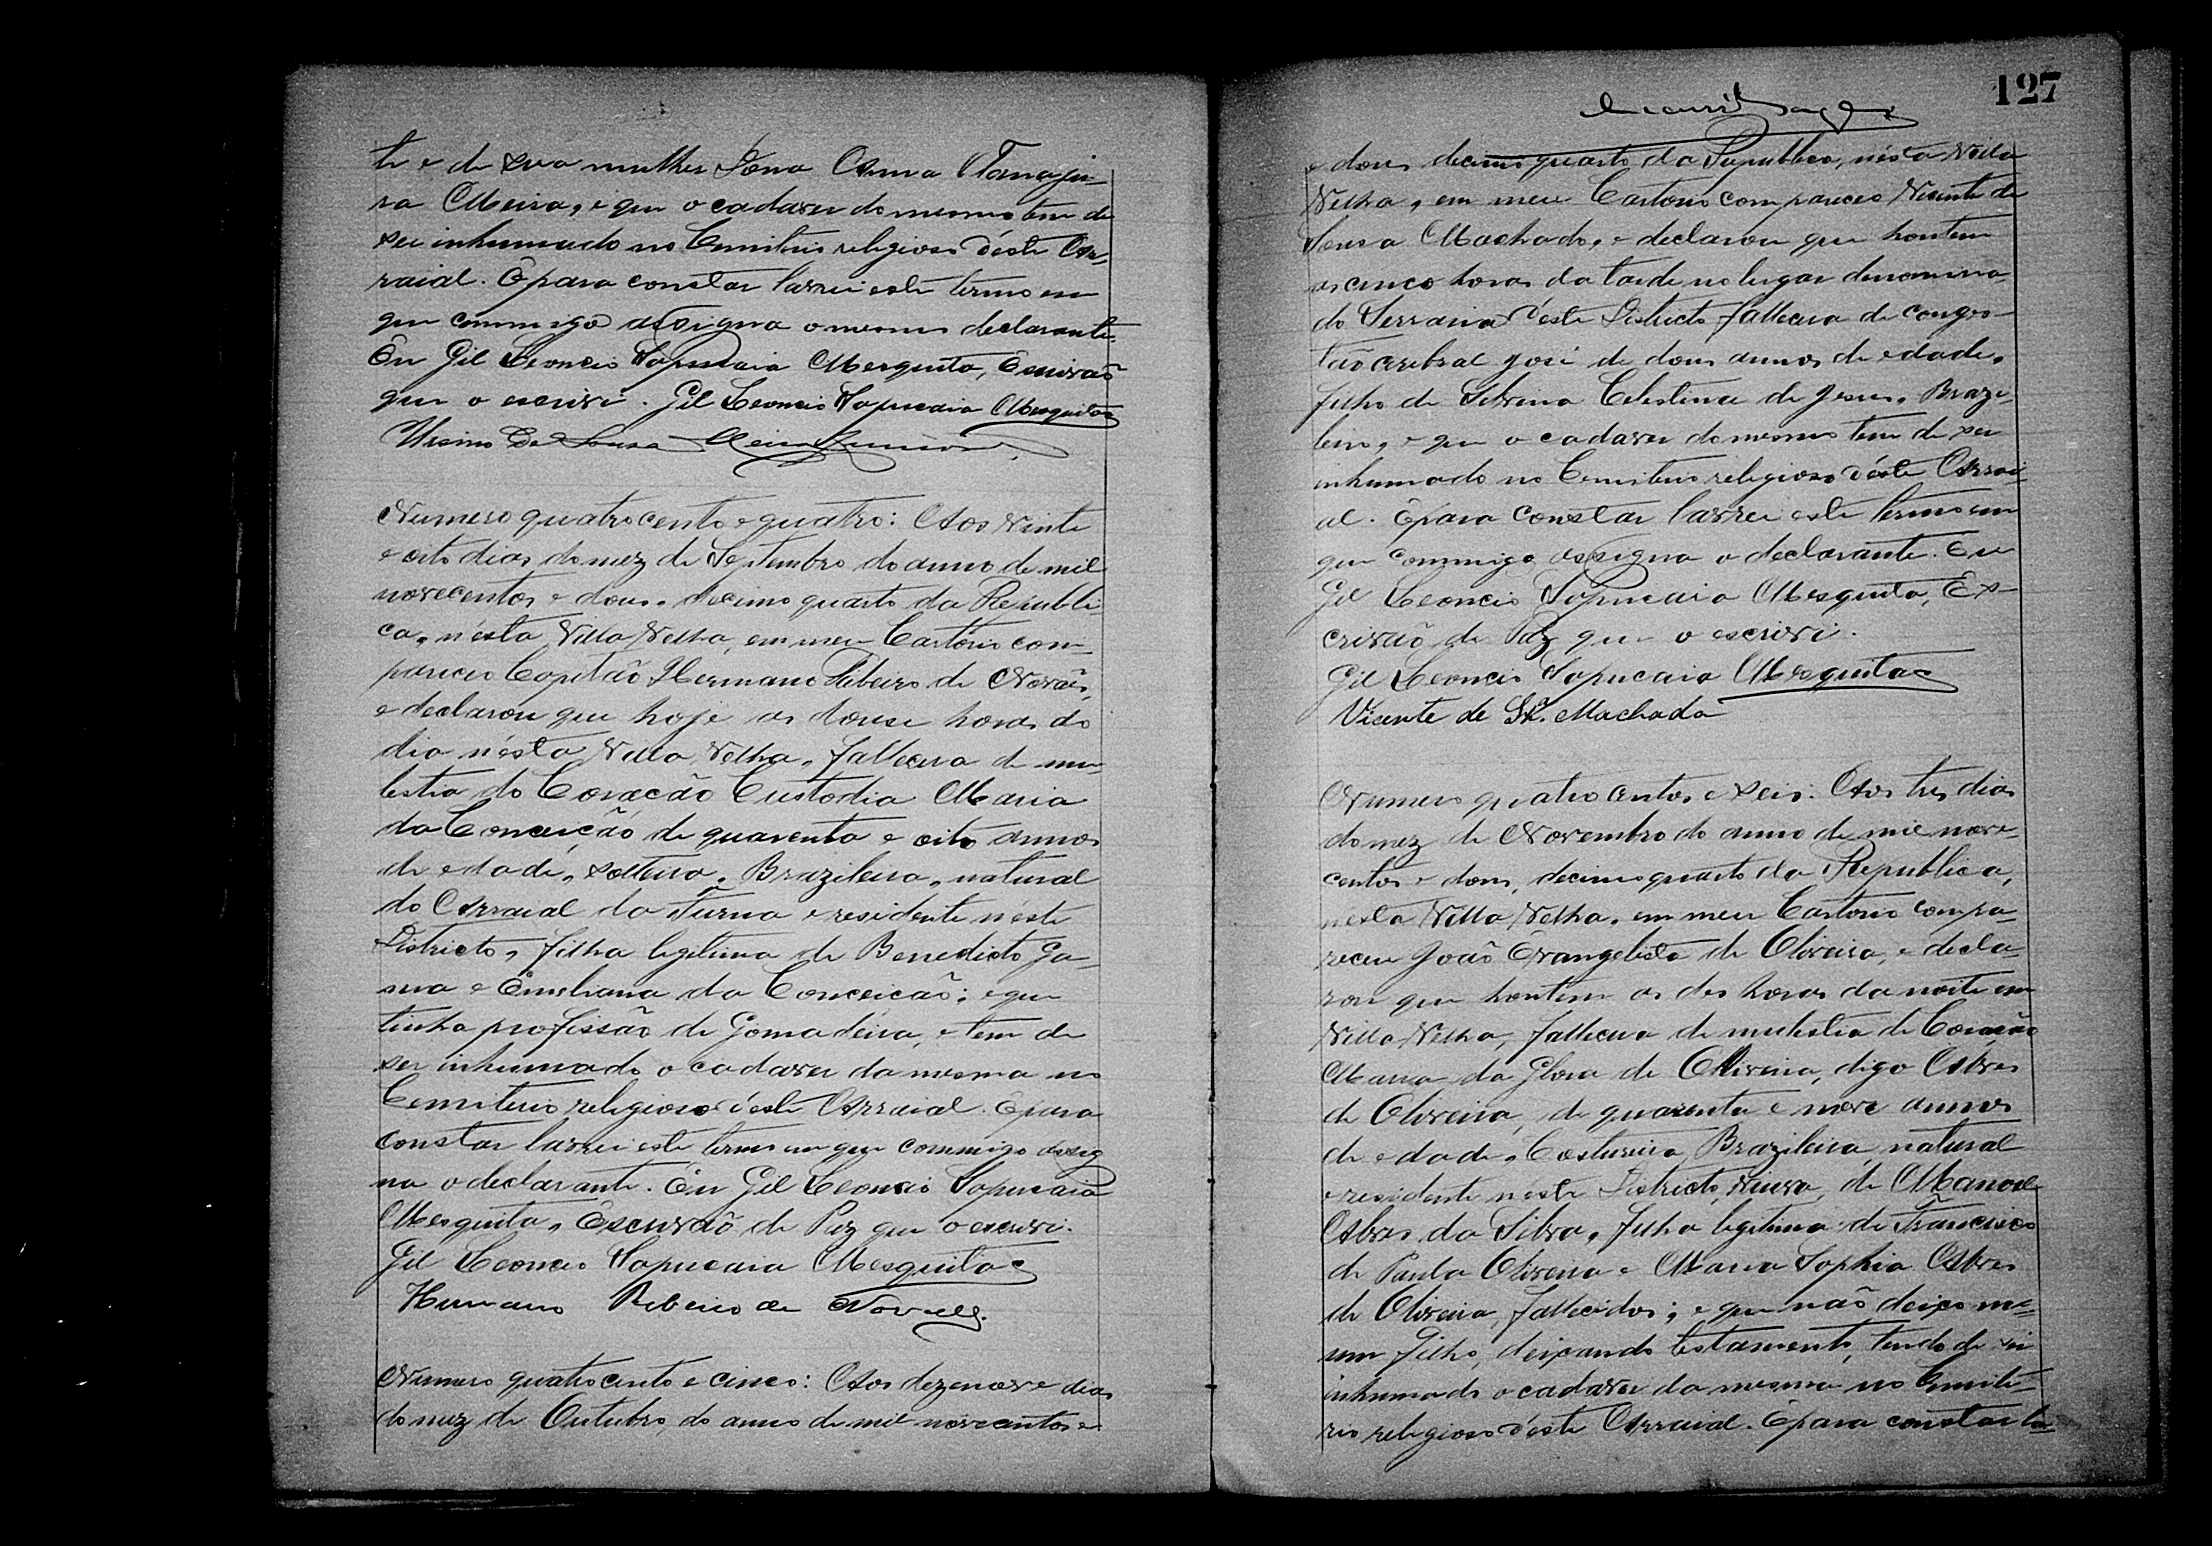 te e de sua mulher Dona Anna Tanaju-
ra Meira, e que o cadaver do mesmo tem de
ser inhumado no Cemiterio religioso d'este Ar-
raial. E para constar lavrei este termo em
que commigo assigna o mesmo declarante.
Eu Gil Leoncio Sapucaia Mesquita, Escrivão
que o escrivi. Gil Leoncio Sapucaia Mesquita
De Sousa Meira Junior
Numero quatro cento e quatro: Aos Vinte
e oito dias do mez de Septembro do anno de mil
novecentos e dous, decimo quarto da Republi
ca, n'esta Villa Velha, em meu Cartorio com-
pareceo Capitão Hermano Ribeiro de Novães,
e declarou que hoje as douse horas do
dia n'esta Villa Velha, fallecera de mo-
lestia do Coração Custodia Maria
da Conceição de quarenta e oito annos
de edade, solteira, Brazileira, natural
do Arraial da Furna e residente n'este
Districto, filha legitima de Benedicto Ga-
ma e Emeliana da Conceicão; e que
tinha profissão de Gomadeira, e tem de
ser inhumado o cadaver da mesma no
Cemiterio religioso d'este Arraial. E para
constar lavrei este termo em que commigo assig
na o declarante. Eu Gil Leoncio Sapucaia
Mesquita, Escrivão de Paz que o escrivi.
Gil Leoncio Sapucaia Mesquita
Hermano Ribeiro de Novaes.
Numero quatro cento e cinco: Aos dezenove dias
do mez de Outubro, do anno de mil novecentos e
127
e dous decimo quarto da Republica, n'esta Villa
Velha, em meu Cartorio compareceo Vicente de
Sousa Machado, e declarou que hontem
as cinco horas da tarde no lugar denomina-
do Serraria d'este Districto fallecera de conges-
tão cerebral José de dous annos de edade,
filho de Silvina Celestina de Jesus, Brazi-
leiro, e que o cadaver do mesmo tem de ser
inhumado no Cemiterio religioso d'este Arrai
al. E para constar lavrei este termo em
que commigo assigna o declarante. Eu
Gil Leoncio Sapucaia Mesquita, Es-
crivão de Paz que o escrivi.
Gil Leoncio Sapucaia Mesquita
Vicente de Sz. Machado
Numero quatro centos e seis: Aos tres dias
do mez de Novembro do anno de mil nove-
centos e dous, decimo quarto da Republica,
nesta Villa Velha, em meu Cartorio compa-
receu João Evangelista de Oliveira, e decla-
rou que hontem as des horas da noite em
Villa Velha, fallecera de mulestia de Coração
Maria da Gloria de Oliveira, digo Alves
de Oliveira, de quarenta e nove annos
de edade, Costureira, Brazileira, natural
e residente neste Districto, viuva, de Manoel
Alves da Silva, filha legitima de Francisco
de Paula Oliveira e Maria Sophia Alves
de Oliveira, fallecidos; e que não deixo ne-
um filho, deixando testamento, tendo de ser
inhumado o cadaver da mesma no Cemite-
rio religioso d'este Arraial. E para constar la-